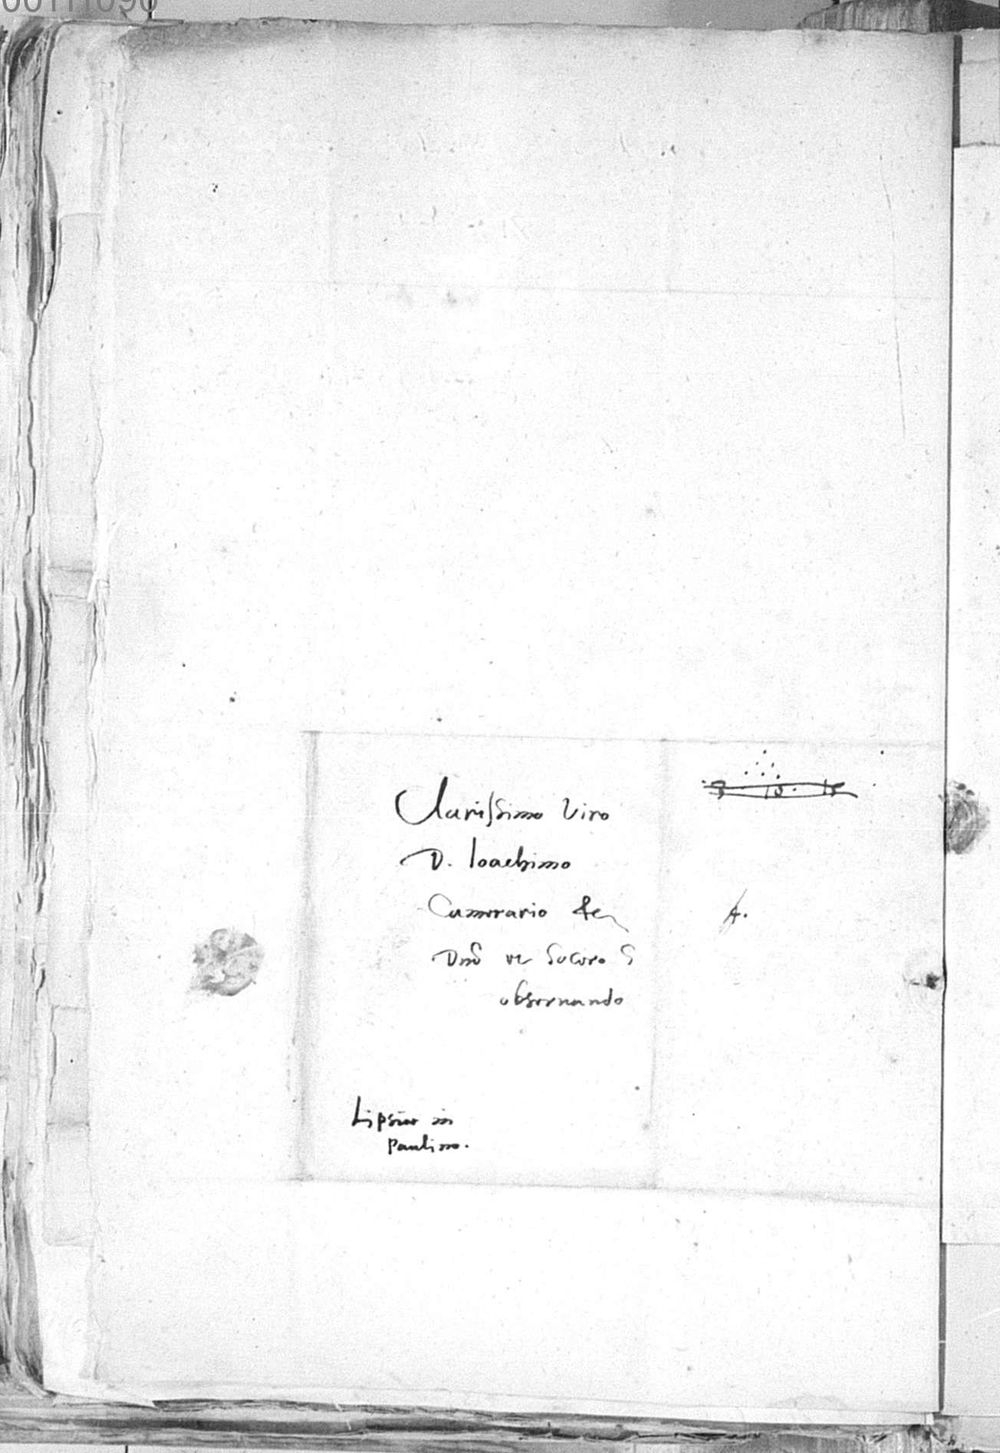 00111090
Clarissimo Viro
D. Ioachimo
Camerario &c
Dnõ ve Socero S
obseruando
A.
Lipsiae in
Paulino.